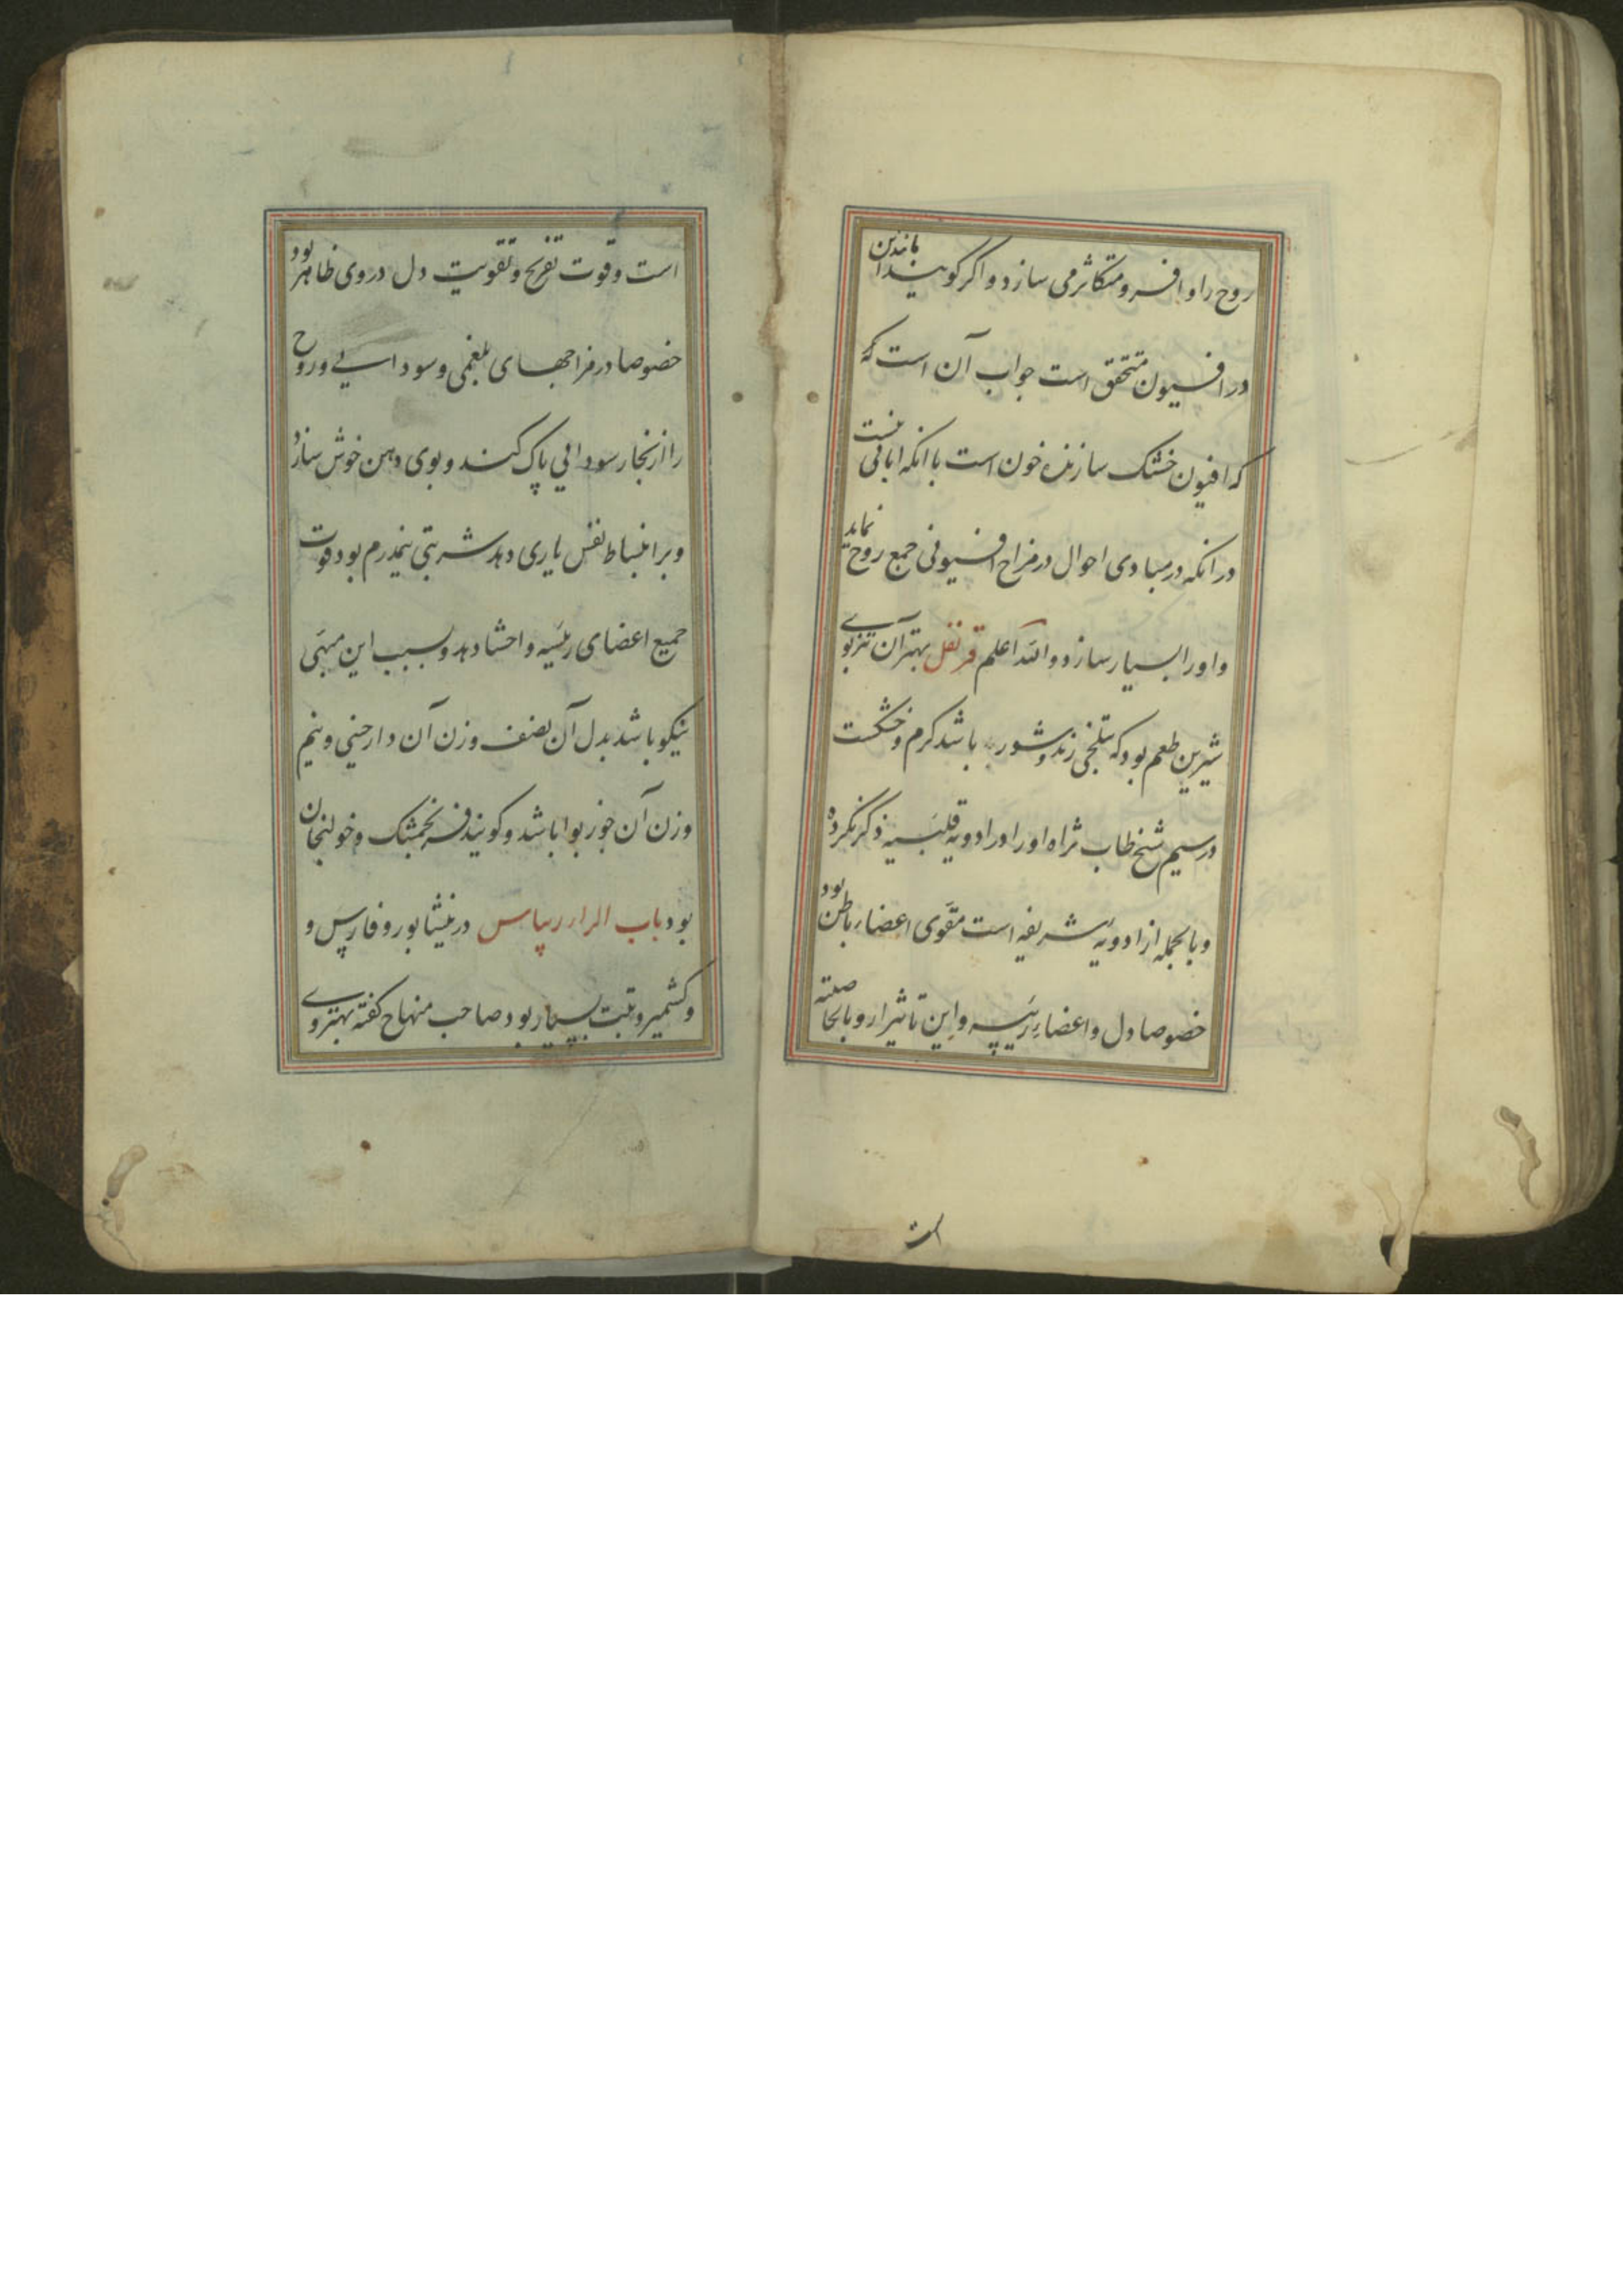 روح را وافر و متکاثر می سازد و اگر گویند این
در افیون متحقق است جواب آن است که
که افیون خشک سازنده خون است با انکه
در انکه در مبادی احوال در مزاج افیونی جمع روح نماید
و او را بسیار سازد والله اعلم قرنفل بهتر آن تیزبوی
شیرین طعم بود که بتلخی زند و شور باشد گرم و خشکست
در سیم شیخ طاب ثراه او را در ادویه قلبیه ذکر نکرده
و بالجمله از ادویه شریفه است مقوی اعضاء باطن بود
خصوصا دل و اعضاء رئیسه و این تاثیر ازو بالخاصیته
است
است و قوت تفریح و تقویت دل در وی ظاهر بود
خصوصا در مزاجهای بلغمی و سودایی و روح
را از بخار سودایی پاک کند و بوی دهن خوش سازد
و بر انبساط نفس یاری دهد شربتی نیمدرم بود قوت
جمیع اعضای رئیسه و احشا دهد و بسبب این مبهی
نیکو باشد بدل آن نصف وزن آن دارچینی و نیم
وزن آن جوز بوا باشد و گویند فرنجمشک و خولنجان
بود باب الرا ریباس در نیشابور و فارس و
و کشمیر و تبت بسیار بود صاحب منهاج گفته بهتر وی